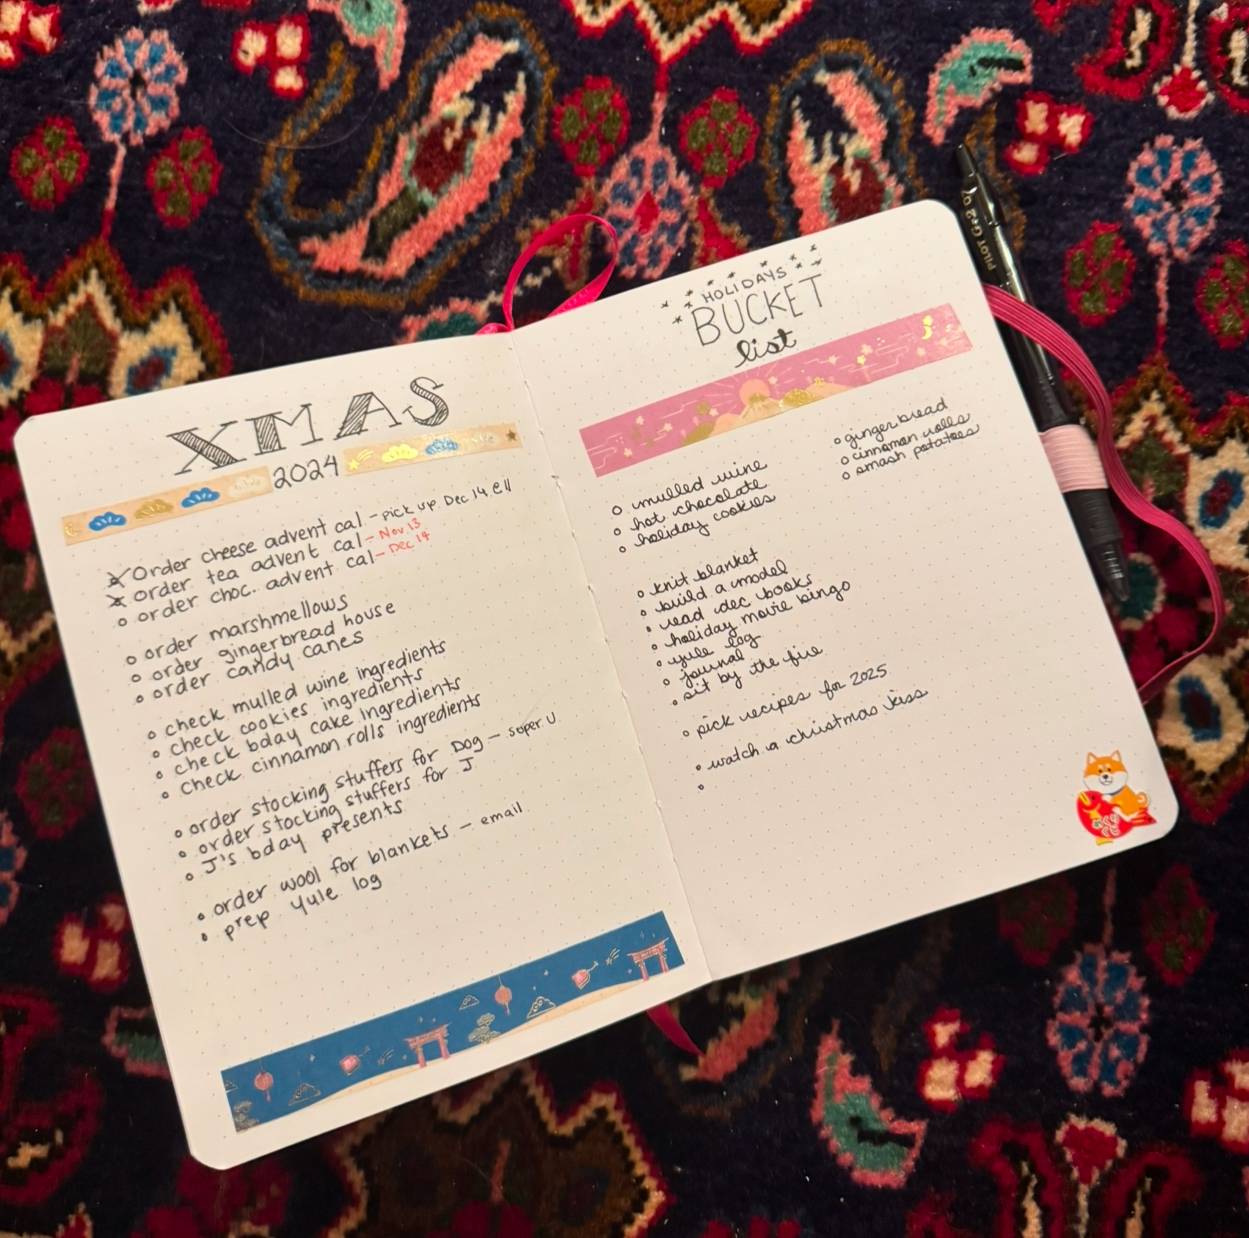 XMAS
2024
Order cheese advent cal - pick up Dec 14, ell
order tea advent cal - Nov 13
order choc. advent cal - Dec 14
order marshmellows
order gingerbread house
order candy canes
check mulled wine ingredients
check cookies ingredients
check bday cake ingredients
check cinnamon rolls ingredients
order stocking stuffers for Dog - super U
order stocking stuffers for J
J's bday presents
order wool for blankets - email
prep yule log
HOLIDAYS
BUCKET
list
mulled wine
hot chocolate
holiday cookies
gingerbread
cinnamon rolls
smash potatoes
knit blanket
build a model
read dec books
holiday movie bingo
yule log
journal
sit by the fire
pick recipes for 2025
watch a christmas
PILOT G-2 07